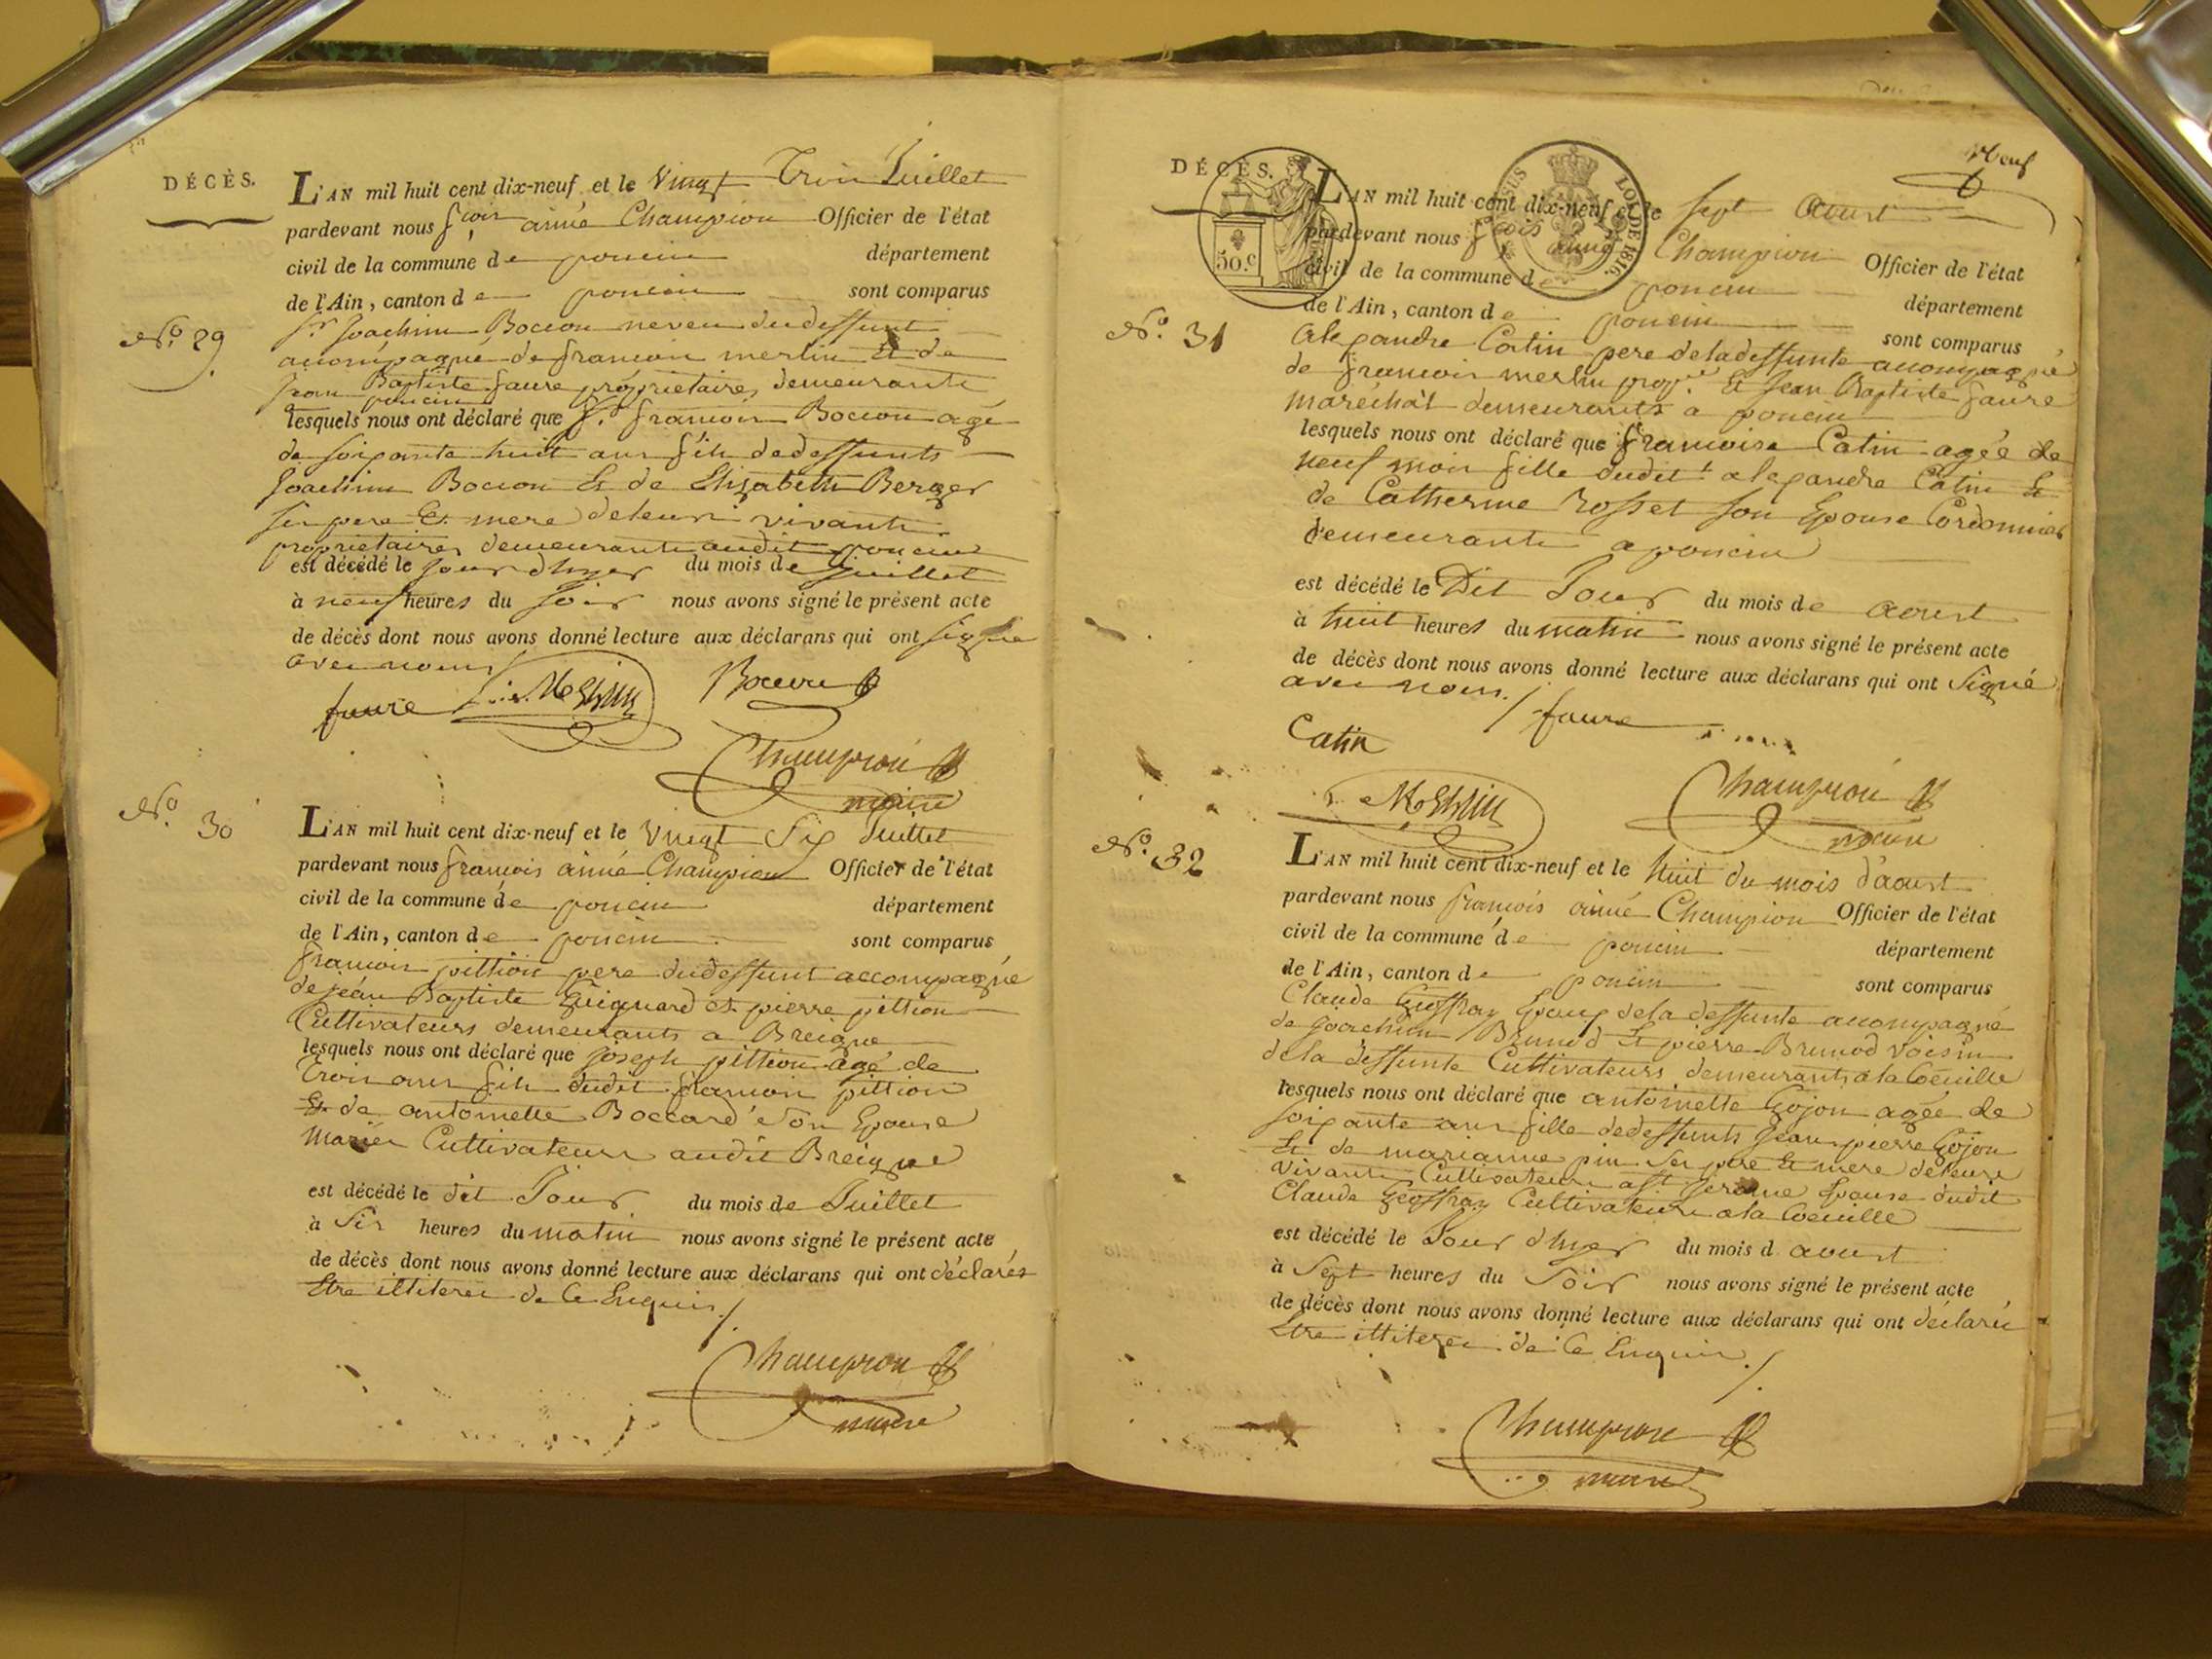 DÉCÈS.
L'AN mil huit cent dix-neuf et le Vingt Trois Juillet
pardevant nous fcois aimé Champion Officier de l'état
civil de la commune de poncin département
de l'Ain, canton de poncin sont comparus
No. 29
Sr. Joachim Bocion neveu du deffunt
acompagné de francois merlin Et de
Jean Baptiste faure propriétaires demeurants
poncin
lesquels nous ont déclaré que Sr. francois Bocion agé
de soixante huit ans fils de deffunts
Joachim Bocion Et de Elizabeth Berger
ses pere Et mere de leurs vivants
proprietaires demeurants audit poncin
est décédé le jour d'hyer du mois de Juillet
à neuf heures du soir nous avons signé le présent acte
de décès dont nous avons donné lecture aux déclarans qui ont signé
avec nous /
faure Merlin
Champion
maire
No. 30
L'AN mil huit cent dix-neuf et le Vingt Six Juillet
pardevant nous francois aimé Champion Officier de l'état
civil de la commune de poncin département
de l'Ain, canton de poncin sont comparus
francois pittion pere du deffunt accompagné
de jean Baptiste Guignard et pierre pittion
Cultivateurs demeurants a Breigne
lesquels nous ont déclaré que joseph pittion agé de
trois ans fils dudit francois pittion
Et de antoinette Boccard son Epouse
mariés Cultivateurs audit Breigne
est décédé le dit Jour du mois de Juillet
à Six heures du matin nous avons signé le présent acte
de décès dont nous avons donné lecture aux déclarans qui ont déclarés
Etre illiterés de Ce Enquis /.
Champion
maire
neuf
DÉCÈS.
50.c
LOI DE 1816.
L'AN mil huit cent dix-neuf et le sept Aoust
pardevant nous fcois aimé Champion Officier de l'état
civil de la commune de poncin département
de l'Ain, canton de poncin sont comparus
No. 31
Alexandre Catin pere de la deffunte accompagné
de francois merlin propre. Et Jean Baptiste faure
maréchal demeurants a poncin
lesquels nous ont déclaré que francoise Catin agée de
neuf mois fille dudit alexandre Catin Et
de Catherine Rosset son Epouse Cordonnier
demeurants a poncin
est décédé le Dit Jour du mois de aoust
à huit heures du matin nous avons signé le présent acte
de décès dont nous avons donné lecture aux déclarans qui ont signé
avec nous. /
faure
Catin
Merlin Champion
maire
No. 32
L'AN mil huit cent dix-neuf et le huit du mois d'aoust
pardevant nous francois aimé Champion Officier de l'état
civil de la commune de poncin département
de l'Ain, canton de poncin sont comparus
Claude Geoffray Epoux de la deffunte accompagné
de joachim Brunod Et pierre Brunod voisin
de la deffunte Cultivateurs demeurants a la Coeuille
lesquels nous ont déclaré que antoinette Gojon agée de
soixante ans fille de deffunts Jean pierre Gojon
Et de marianne pin ses pere Et mere de leurs
vivants Cultivateurs a st. jerome Epouse dudit
Claude Geoffray Cultivateurs a la Coeuille
est décédé le Jour d'hyer du mois d. aoust
à Sept heures du Soir nous avons signé le présent acte
de décès dont nous avons donné lecture aux déclarans qui ont déclarés
Etre illiterés de Ce Enquis /.
Champion
maire